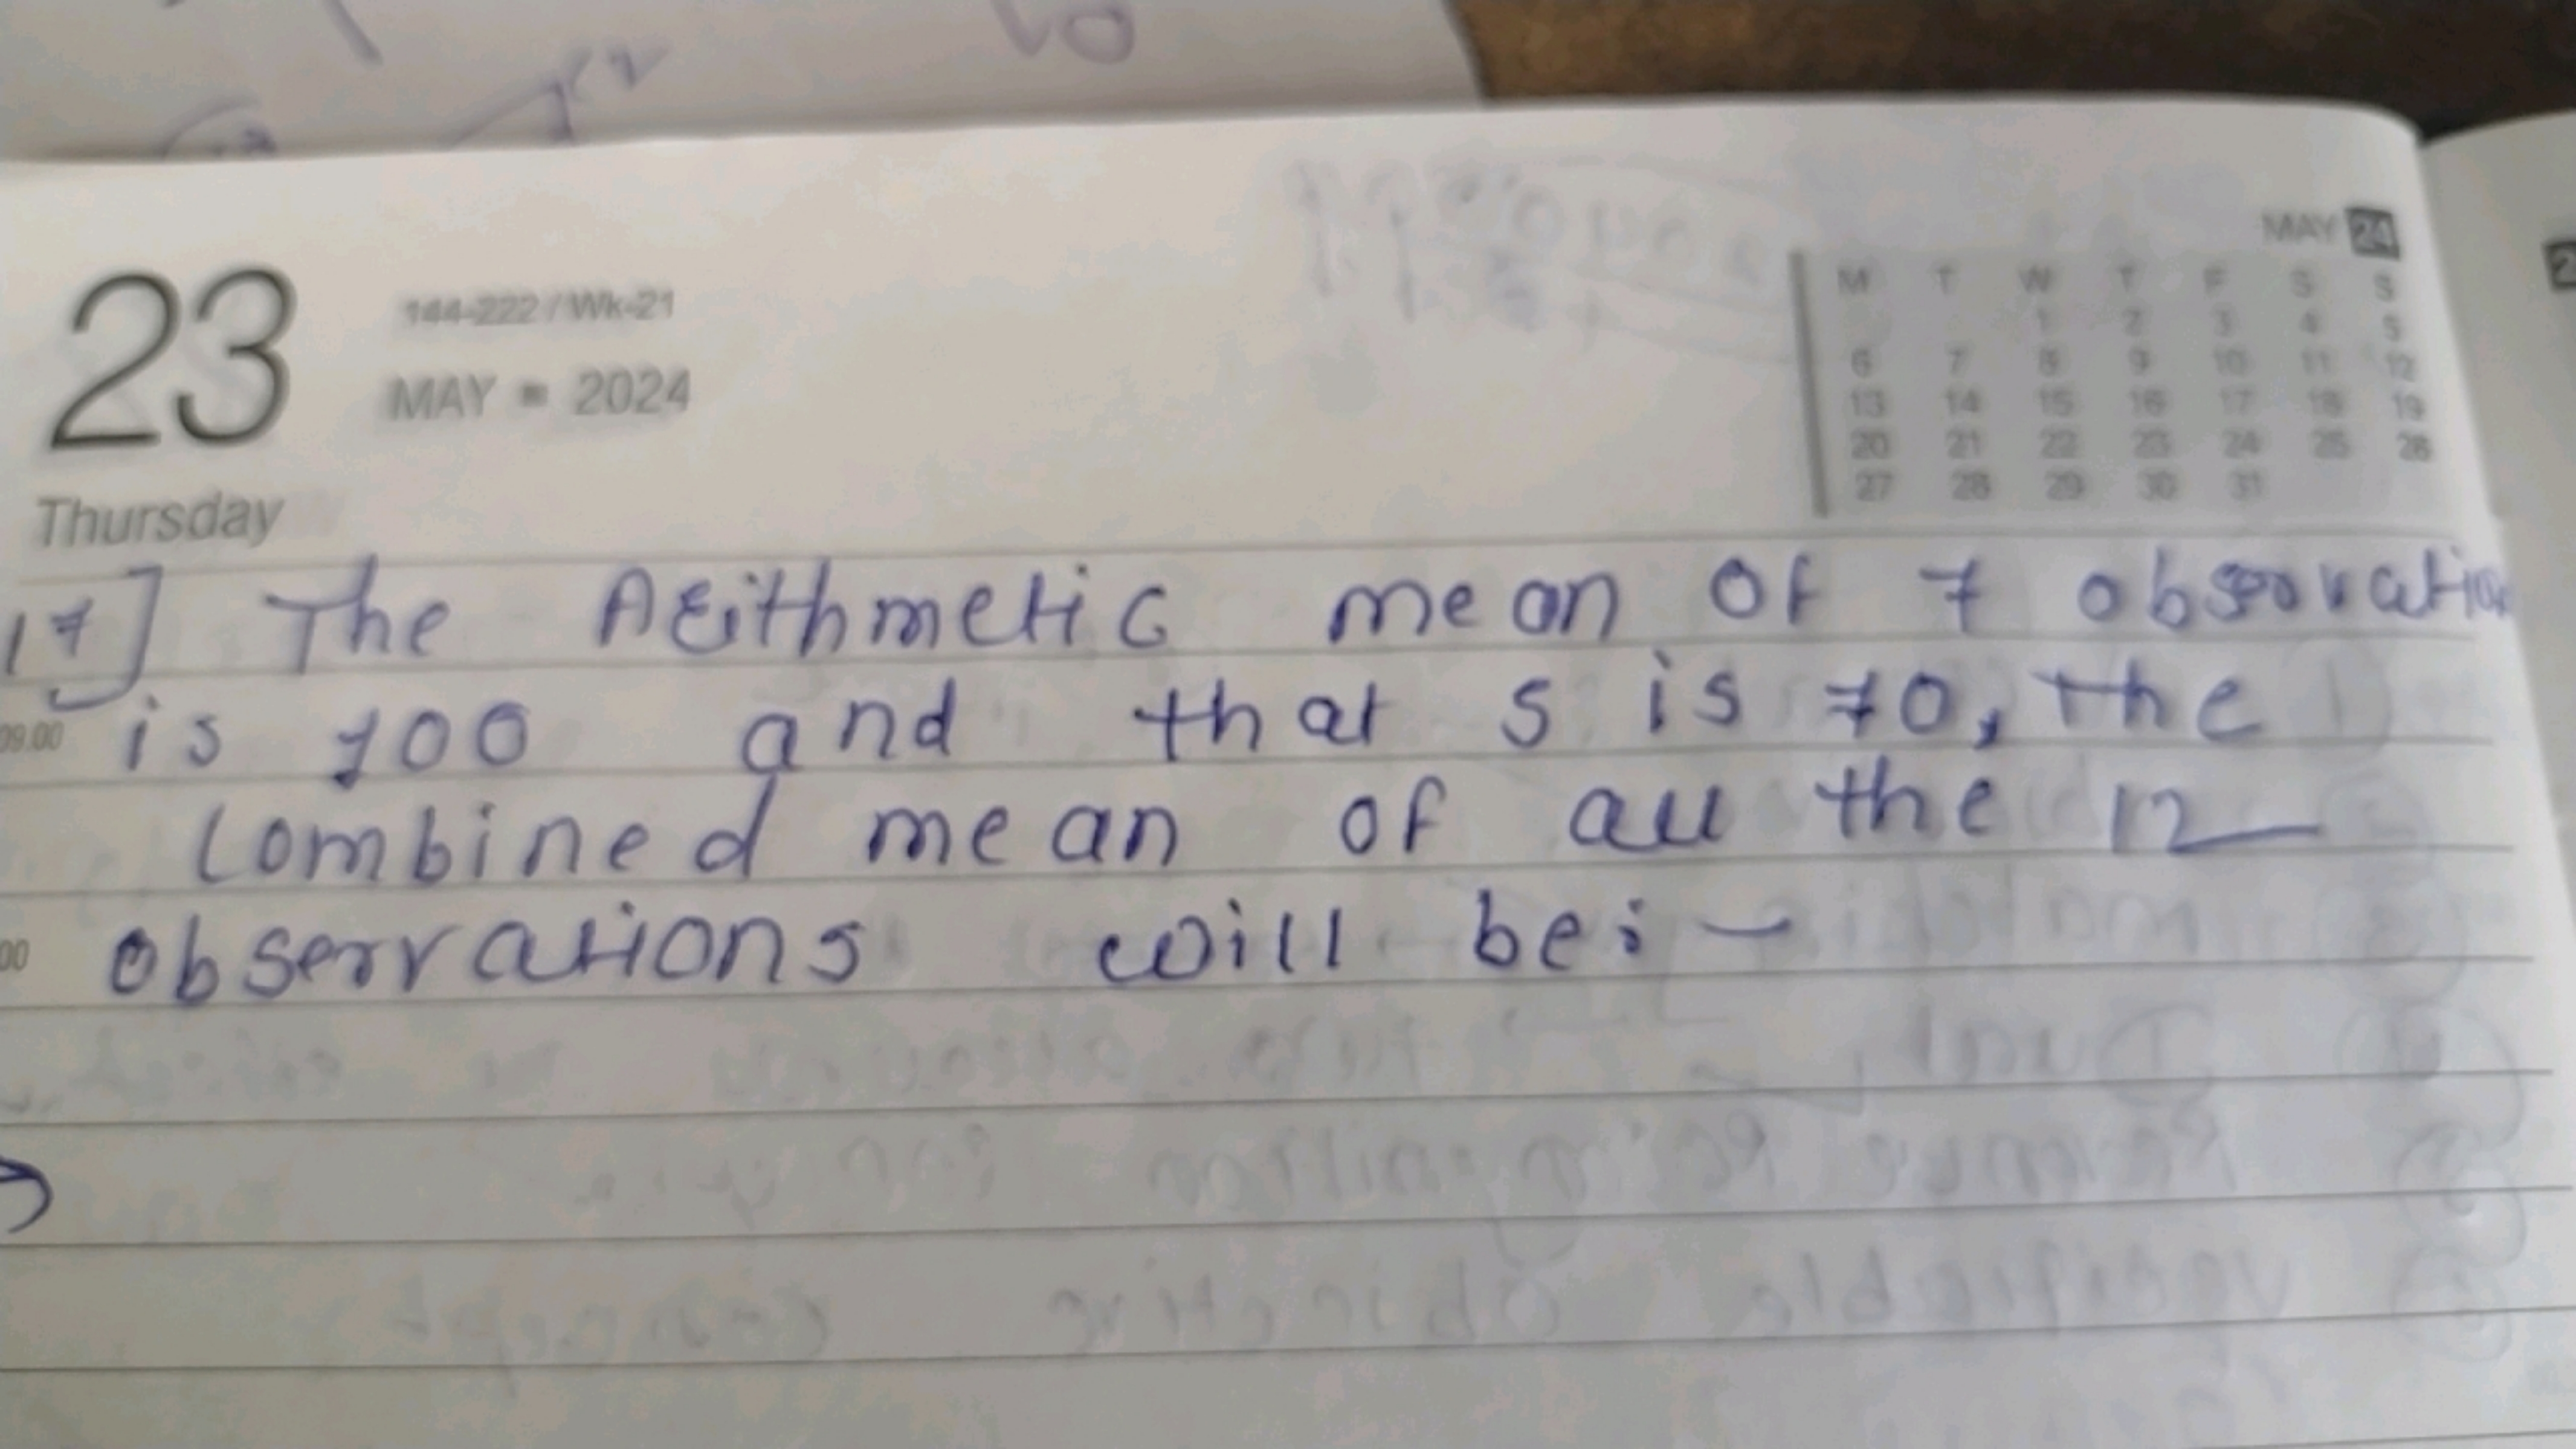 MAY 24
23
144-222 / Wk-21
MAY ▪ 2024
M T W T F S S
1 2 3 4 5
6 7 8 9 10 11 12
13 14 15 16 17 18 19
20 21 22 23 24 25 26
27 28 29 30 31
Thursday
17] The Arithmetic mean of 7 observation
09.00 is 100 and that 5 is 70, the
combined mean of all the 12
00 observations will be:-